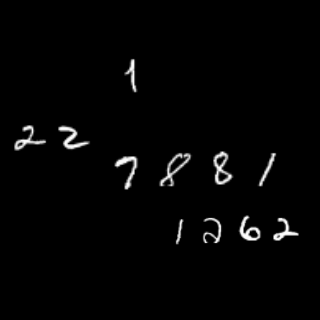 1
22
7881
1262